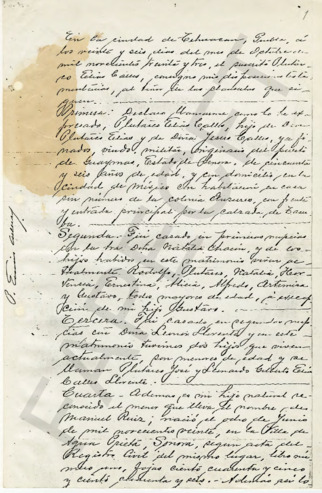 En la ciudad de Tehuacan, Puebla, a
los veinte y seis dias del mes de Octubre de
mil novecientos treinta y tres, el suscrito Plutar-
co Elías Calles, consigno mis disposiciones testa-
mentarias, al tenor de las clausulas que si-
guen.
Primera: Declaro llamarme como lo he ex-
presado, Plutarco Elías Calles, hijo de Don
Plutarco Elías y de Doña Jesus Calles, ya fi-
nados, viudo, militar, originario del puerto
de Guaymas, Estado de Sonora, de cincuenta
y seis años de edad, y con domicilio en la
ciudad de Mexico con habitación en casa
sin número de la colonia Anzures, con frente
y entrada principal por la calzada de Tacu-
ba.
Segunda: Fuí casado en primeras nupcias
con la Sra Doña Natalia Chacón, y de los
hijos habidos en este matrimonio viven ac-
tualmente Rodolfo, Plutarco, Natalia, Hor-
tensia, Ernestina, Alicia, Alfredo, Artemisa
y Gustavo, todos mayores de edad, á excep-
ción de mi hijo Gustavo.
Tercera. Fuí casado en segundas nup-
cias con Doña Leonor Llorente y en este
matrimonio tuvimos dos hijos que viven
actualmente, son menores de edad y se
llaman Plutarco José y Leonardo Gilberto Elías
Calles Llorente.
Cuarta - Ademas es mi hijo natural re-
conocido el menor que lleva el nombre de
Manuel Ruiz; nació el ocho de Junio
de mil novecientos veinte, en la Villa de
Agua Prieta, Sonora, segun acta del
Registro Civil del mismo lugar, libro nú-
mero uno, fojas ciento cuarenta y cinco
y ciento cuarenta y seis. - Ademas por lo
P. Elías Calles